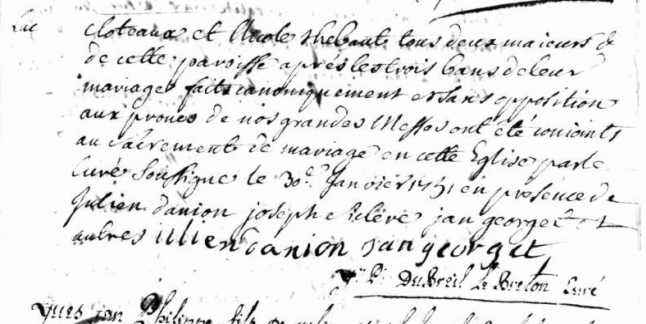 Luc cloteaux et Nicole thebaut tous deux majeurs de
de cette paroisse apres les trois bans de leur
mariage faits canoniquement et sans opposition
aux prones de nos grandes Messes ont été conjoints
au Sacrement de mariage en cette Eglise par le
Curé Soussigné le 30e. Janvier en présence de
Julien danion joseph jan georget et
autres iulien danion jan georget
DuBreil Le Breton Curé
yues jan Philippe fils